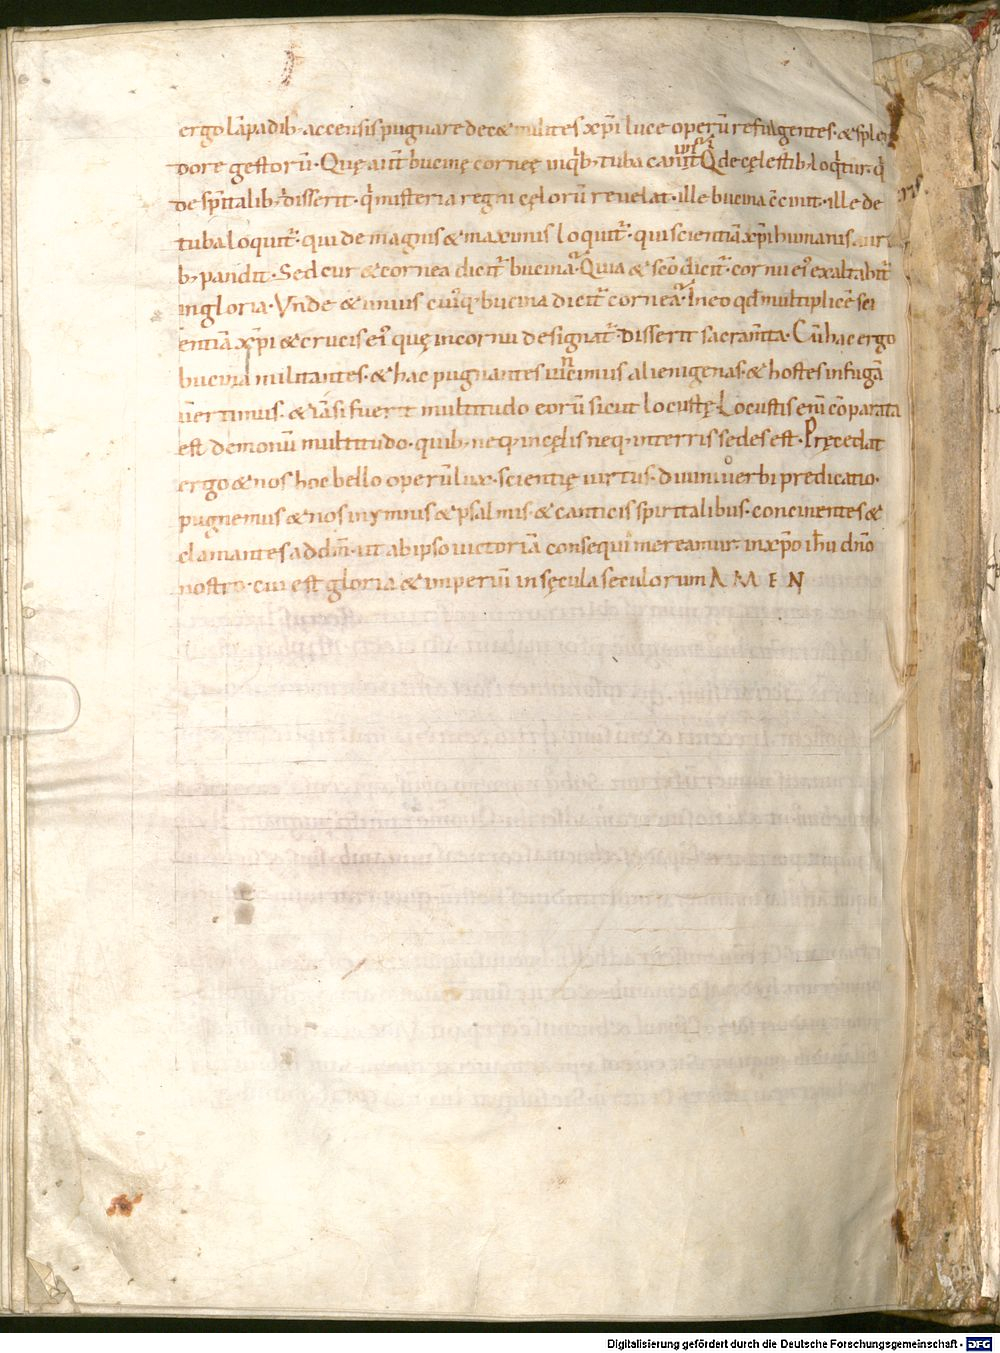 ergo lāpadib; accensis pugnare decet milites xp̄i luce operū refulgentes. & splen
dore gestorū. Quę aut̄ bucinę corneę inq̇b; tuba canit̄ Q de cęlestib; loq̇tur. q̇
de sp̄italib; disserit. q̇ misteria regni cęlorū reuelat. ille bucina c̄cinit. ille de
tuba loquit̄. qui de magnis & maximis loquit̄. qui scientiā xp̄i humanis aurì
b; pandit. Sed cur & cornea dicit̄ bucina. Quia & sc̄o dicit̄. cornu ei' exaltabit̄
in gloria. Vnde & unius cuiq; bucina dicit̄ cornea. In eo qd̄ multiplicē sci
entiā xp̄i & crucis ei' quę in cornu designat̄. disserit sacram̄ta. Cū hac ergo
bucina militantes. & hac pugnantes uincimus alienigenas. & hostes in fugā
uertimus. & iā si fuerit multitudo eorū sicut locustę. Locustis eni cōparata
est demonū multitudo. quib; neq; in cęlis neq; in terris sedes est. Pręcedat
ergo & nos hoc bello operū lux. scientię uirtus. diuini uerbi predicatio.
pugnemus & nos in ymnis & psalmis. & canticis spiritalibus. concinentes &
clamantes ad dm̄. ut ab ipso uictoriā consequi mereamur. in xp̄o ih̄u dn̄o
nostro. cui est gloria & imperiū in sęcula seculorum A M E N
Digitalisierung gefördert durch die Deutsche Forschungsgemeinschaft - DFG